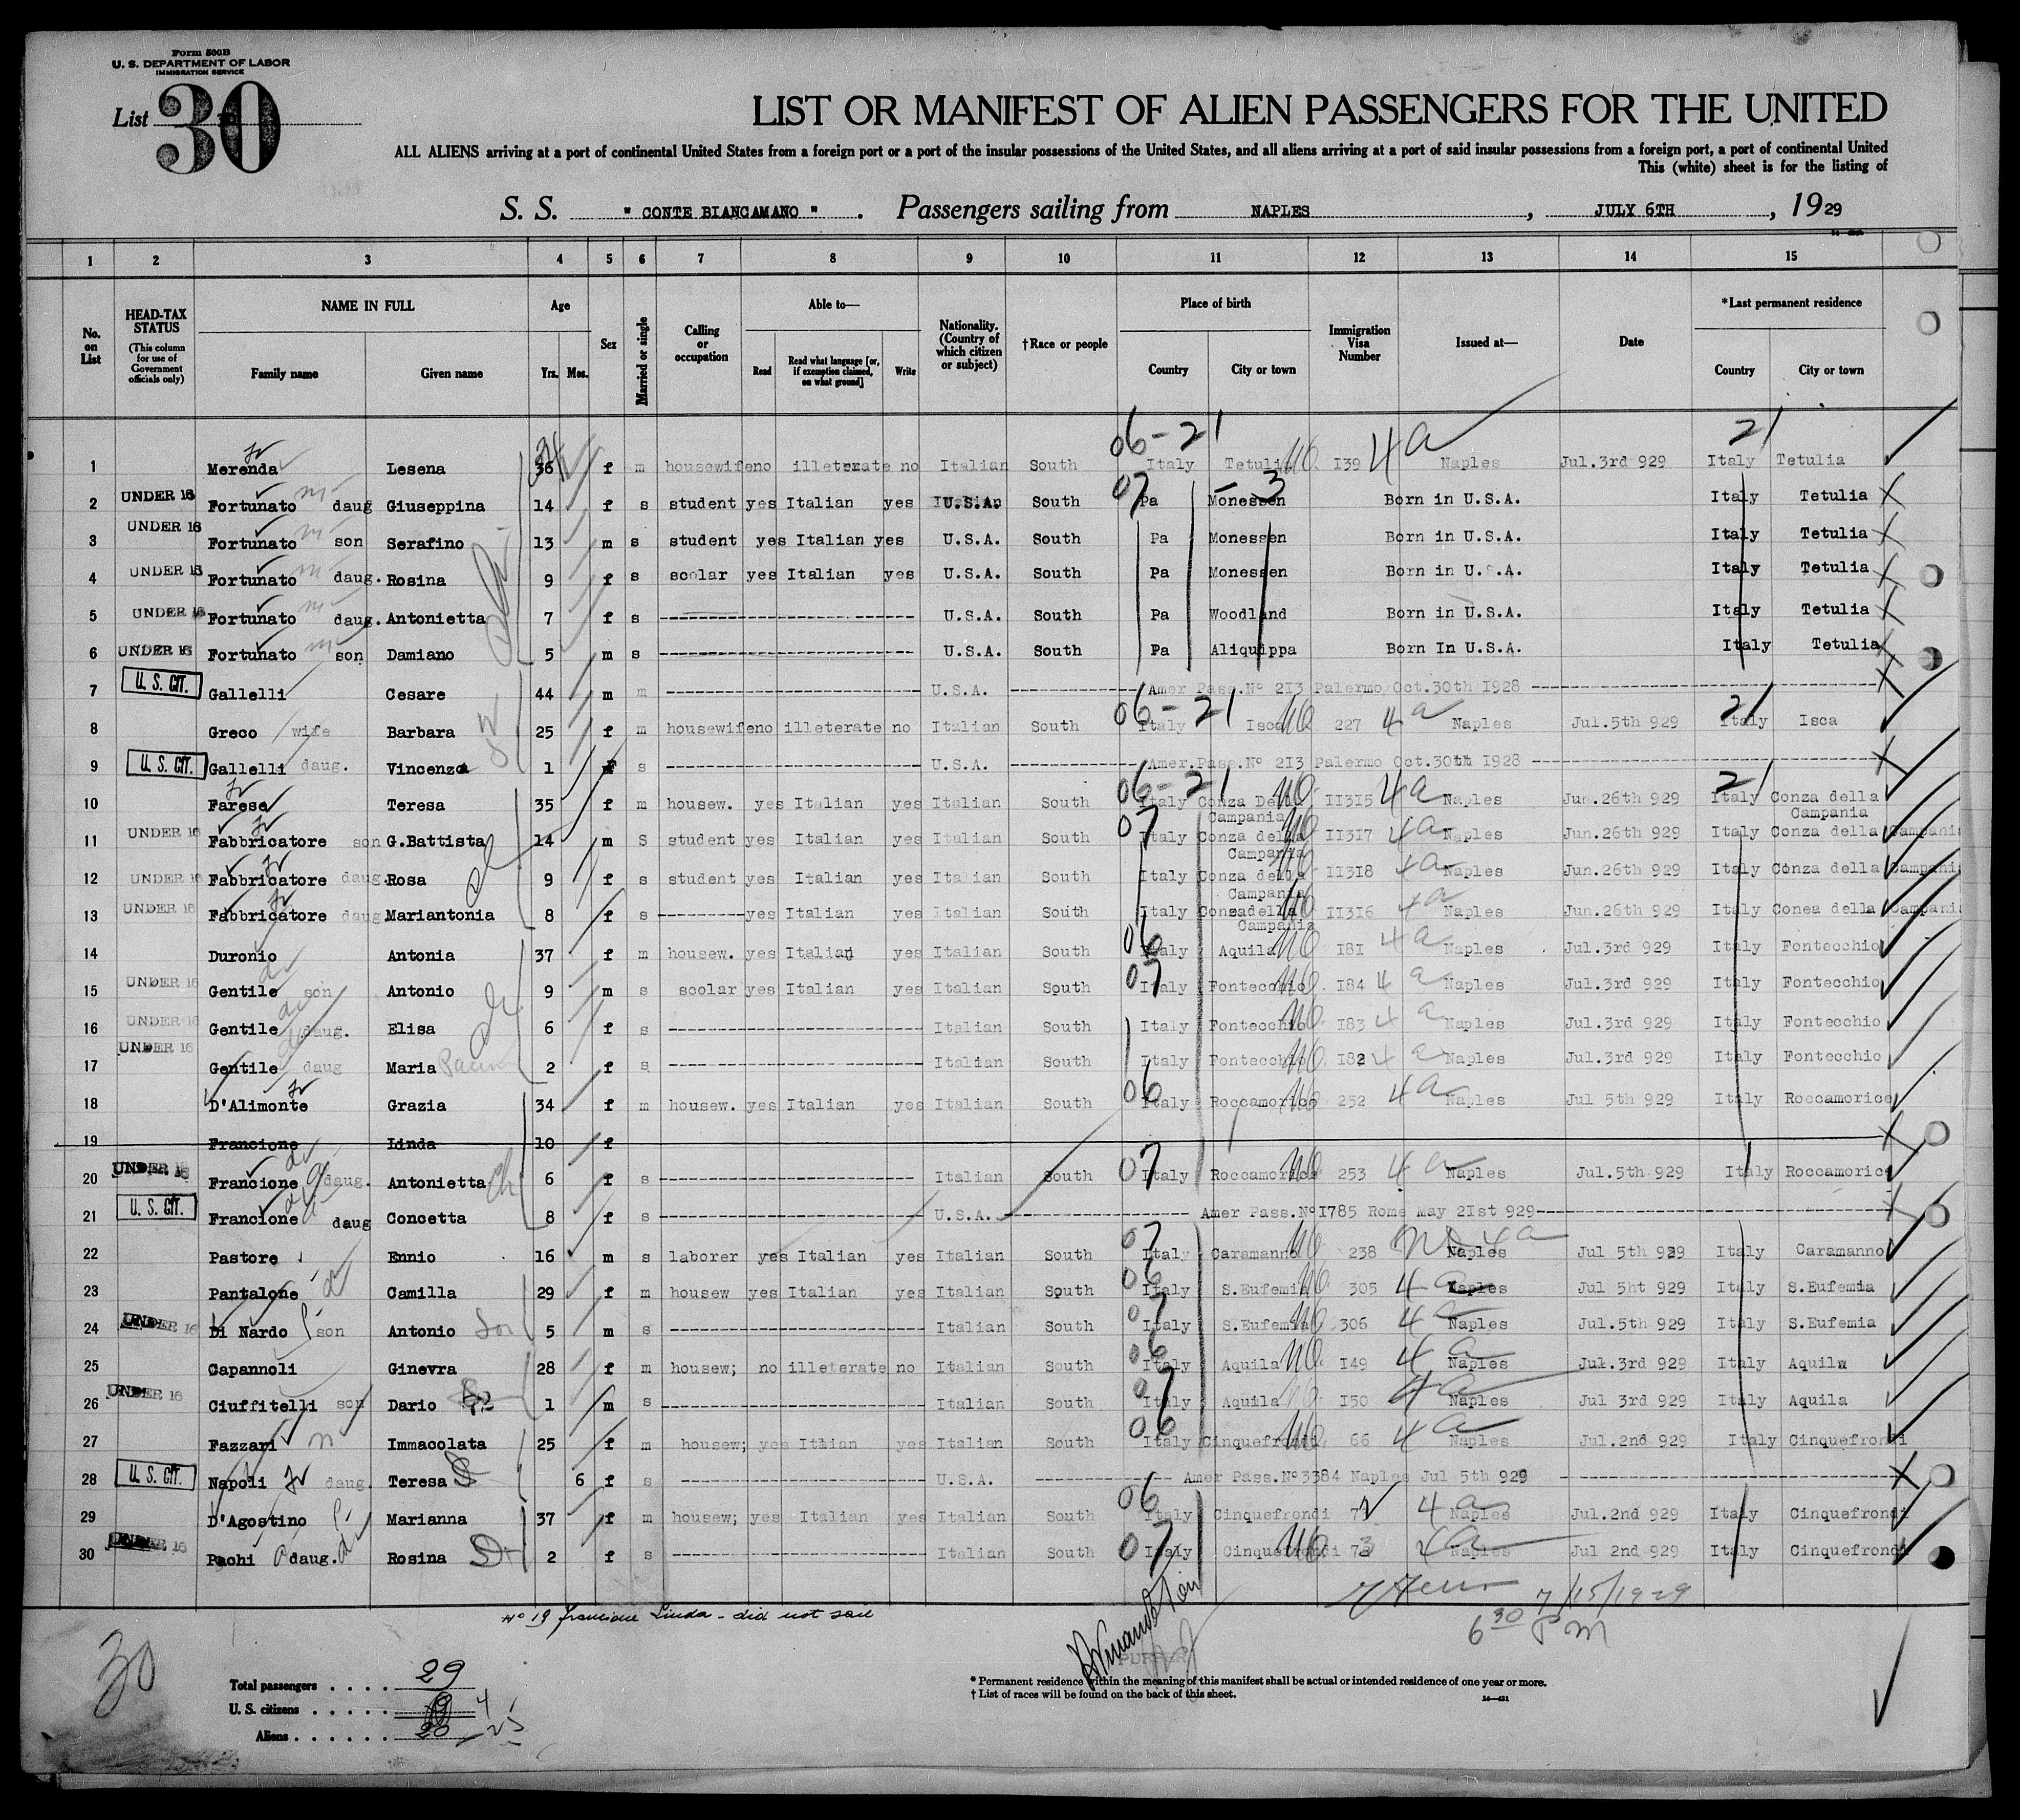 Form 500B
U. S. DEPARTMENT OF LABOR
IMMIGRATION SERVICE
List 30
LIST OR MANIFEST OF ALIEN PASSENGERS FOR THE UNITED
ALL ALIENS arriving at a port of continental United States from a foreign port or a port of the insular possessions of the United States, and all aliens arriving at a port of said insular possessions from a foreign port, a port of continental United
This (white) sheet is for the listing of
S. S. " CONTE BIANCAMANO " . Passengers sailing from NAPLES , JULY 6TH , 1929
1 2 3 4 5 6 7 8 9 10 11 12 13 14 15
No. on List
HEAD-TAX STATUS
(This column for use of Government officials only)
NAME IN FULL
Family name Given name
Age
Yrs. Mos.
Sex
Married or single
Calling or occupation
Able to—
Read Read what language [or, if exemption claimed, on what ground] Write
Nationality. (Country of which citizen or subject)
†Race or people
Place of birth
Country City or town
Immigration Visa Number
Issued at—
Date
*Last permanent residence
Country City or town
06-21 21
1 Merenda Lesena 36 f m housewife no illeterate no Italian South Italy Tetulia I39 4a Naples Jul.3rd 929 Italy Tetulia
2 UNDER 16 Fortunato daug Giuseppina 14 f s student yes Italian yes U.S.A. South 07 Pa - 3 Monessen Born in U.S.A. Italy Tetulia
3 UNDER 16 Fortunato son Serafino 13 m s student yes Italian yes U.S.A. South Pa Monessen Born in U.S.A. Italy Tetulia
4 UNDER 16 Fortunato daug. Rosina 9 f s scolar yes Italian yes U.S.A. South Pa Monessen Born in U.S.A. Italy Tetulia
5 UNDER 16 Fortunato daug. Antonietta 7 f s U.S.A. South Pa Woodland Born in U.S.A. Italy Tetulia
6 UNDER 16 Fortunato son Damiano 5 m s U.S.A. South Pa Aliquippa Born In U.S.A. Italy Tetulia
7 U. S. CIT. Gallelli Cesare 44 m m U.S.A. Amer Pass.Nº 2I3 Palermo Oct.30th I928
8 Greco wife Barbara 25 f m housewife no illeterate no Italian South 06-21 Italy Isca 227 4a Naples Jul.5th 929 21 Italy Isca
9 U. S. CIT. Gallelli daug. Vincenza 1 f s U.S.A. Amer.Pass.Nº 2I3 Palermo Oct.30th I928
10 Farese Teresa 35 f m housew. yes Italian yes Italian South 06-21 Italy Conza Della Campania II3I5 4a Naples Jun.26th 929 21 Italy Conza della Campania
11 UNDER 16 Fabbricatore son G.Battista 14 m S student yes Italian yes Italian South 07 Italy Conza della Campania II3I7 4a Naples Jun.26th 929 Italy Conza della Campania
12 UNDER 16 Fabbricatore daug. Rosa 9 f s student yes Italian yes Italian South Italy Conza della Campania II3I8 4a Naples Jun.26th 929 Italy Conza della Campania
13 UNDER 16 Fabbricatore daug Mariantonia 8 f s yes Italian yes Italian South Italy Conzadella Campania II3I6 4a Naples Jun.26th 929 Italy Conea della Campania
14 Duronio Antonia 37 f m housew. yes Italian yes Italian South 06 Italy Aquila I8I 4a Naples Jul.3rd 929 Italy Fontecchio
15 UNDER 16 Gentile son Antonio 9 m s scolar yes Italian yes Italian South 07 Italy Fontecchio I84 4a Naples Jul.3rd 929 Italy Fontecchio
16 UNDER 16 Gentile daug. Elisa 6 f s Italian South Italy Fontecchio I83 4a Naples Jul.3rd 929 Italy Fontecchio
17 UNDER 16 Gentile daug Maria 2 f s Italian South Italy Fontecchio I82 4a Naples Jul.3rd 929 Italy Fontecchio
18 D'Alimonte Grazia 34 f m housew. yes Italian yes Italian South 06 Italy Roccamorice 252 4a Naples Jul 5th 929 Italy Roccamorice
19 Francione Linda 10 f
20 UNDER 16 Francione daug. Antonietta 6 f s Italian South 07 Italy Roccamorice 253 4a Naples Jul.5th 929 Italy Roccamorice
21 U. S. CIT. Francione daug Concetta 8 f s U.S.A. Amer Pass.Nº I785 Rome May 2Ist 929
22 Pastore Ennio 16 m s laborer yes Italian yes Italian South 07 Italy Caramanno 238 4a Naples Jul 5th 929 Italy Caramanno
23 Pantalone Camilla 29 f m housew yes Italian yes Italian South 06 Italy S.Eufemia 305 4a Naples Jul 5ht 929 Italy S.Eufemia
24 UNDER 16 Di Nardo son Antonio 5 m s Italian South 07 Italy S.Eufemia 306 4a Naples Jul.5th 929 Italy S.Eufemia
25 Capannoli Ginevra 28 f m housew; no illeterate no Italian South 06 Italy Aquila I49 4a Naples Jul.3rd 929 Italy Aquila
26 UNDER 16 Ciuffitelli son Dario 1 m s Italian South 07 Italy Aquila I50 4a Naples Jul 3rd 929 Italy Aquila
27 Fazzari Immacolata 25 f m housew; yes Italian yes Italian South 06 Italy Cinquefrondi 66 4a Naples Jul.2nd 929 Italy Cinquefrondi
28 U. S. CIT. Napoli daug. Teresa 6 f s U.S.A. Amer Pass.Nº 3384 Naples Jul 5th 929
29 D'Agostino Marianna 37 f m housew; yes Italian yes Italian South 06 Italy Cinquefrondi 4a Naples Jul.2nd 929 Italy Cinquefrondi
30 UNDER 16 Pachi daug. Rosina 2 f s Italian South 07 Italy Cinquefrondi 4a Naples Jul 2nd 929 Italy Cinquefrondi
Nº 19 Francione Linda - did not sail
7/15/1929
6 30 P M
30
PURSER
Total passengers . . . . 29
U. S. citizens . . . . . 4
Aliens . . . . . . 25
* Permanent residence within the meaning of this manifest shall be actual or intended residence of one year or more.
† List of races will be found on the back of this sheet.